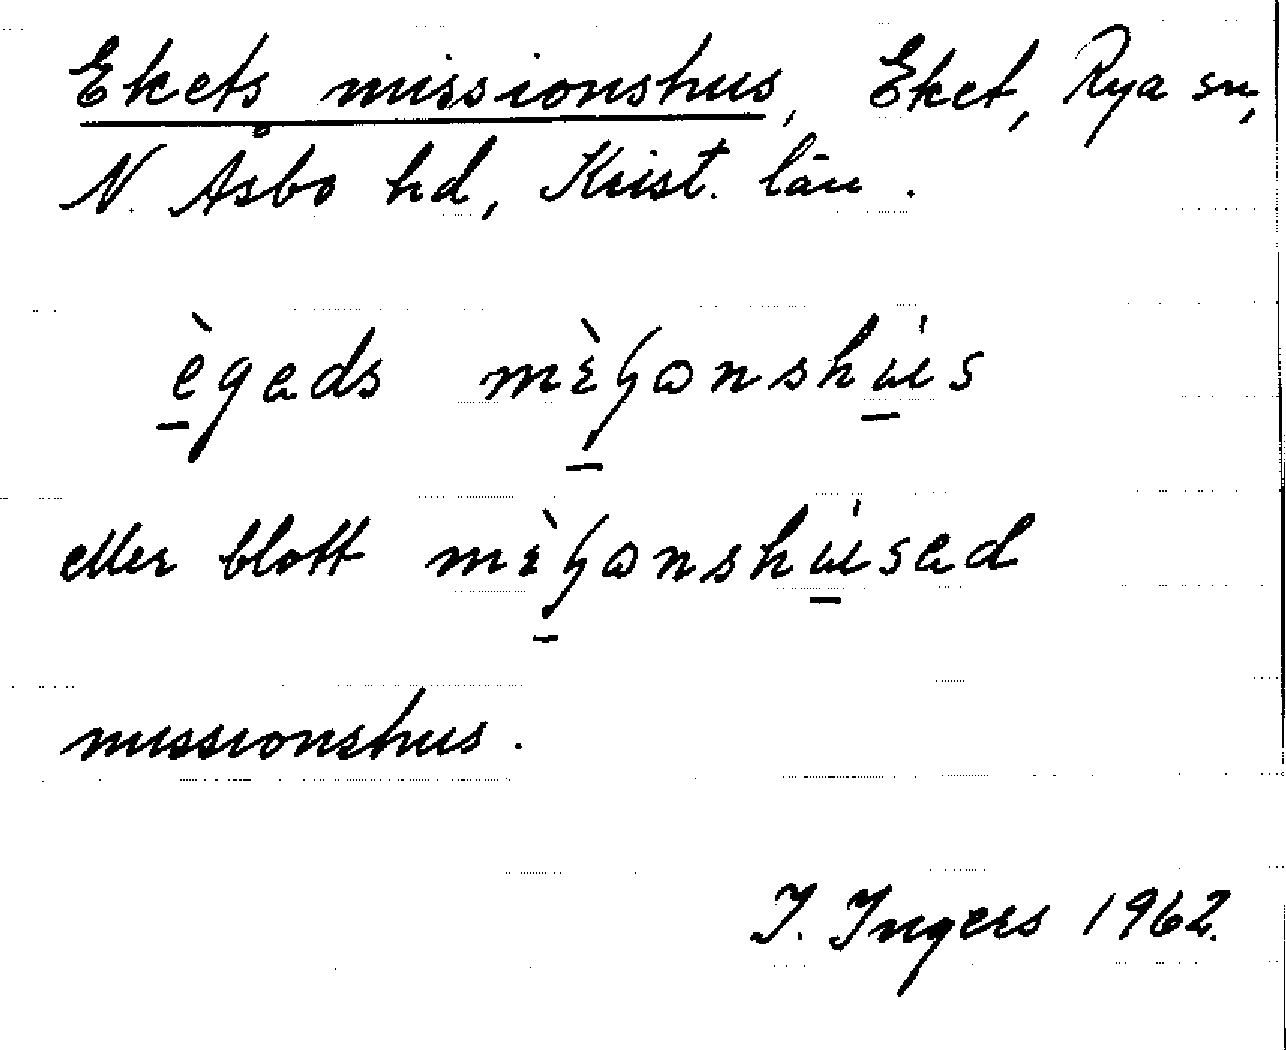 Ekets missionshus, Eket, Rya sn,
N. Åsbo hd, Krist. län.
è̱gads mɪ̀ʃ̱ɷnshụ̱́s
eller blott mɪ̀ʃ̱ɷnshụ̱́sad
missionshus.
I. Ingers 1962.